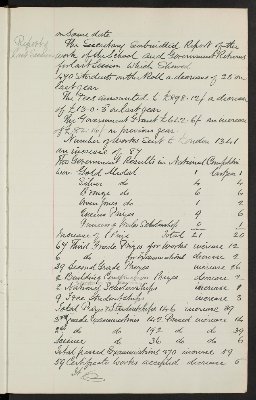 on Same date
Report of
last Session
The Secretary submitted Report of the
work of the School and Government Returns
for last Session which showed
440 Students on the Roll a decrease of 28 on
last year
The Fees amounted to £598.12/- a decrease
of £13.0.3 on last year
The Government Grant £612.6/- an increase
of on previous year
Number of works sent to London 1341
an increase of 87
The Government Results in National Competition
Gold Medal 1
Silver do 4 4
Bronze do 6 6
Owen Jones do 1 2
Queens Prizes 9 6
Princess of Wales Scholarship 0 1
Increase of 1 Prize Total 21 20
67 Third Grade Prizes for Works increase 12
6 do for Examinations decrease 2
39 Second Grade Prizes increase 26
2 Building Construction Prizes decrease
2 National Scholarships increase
9 Free Studentships increase 3
Total Prizes & Studentships 146 increase
3rd Grade Examinations 142 Passed increase
2nd do do 192 do do 39
Science do 36 do do 6
Total passed Examinations 370 increase 59
59 Certificate Works accepted decrease 5